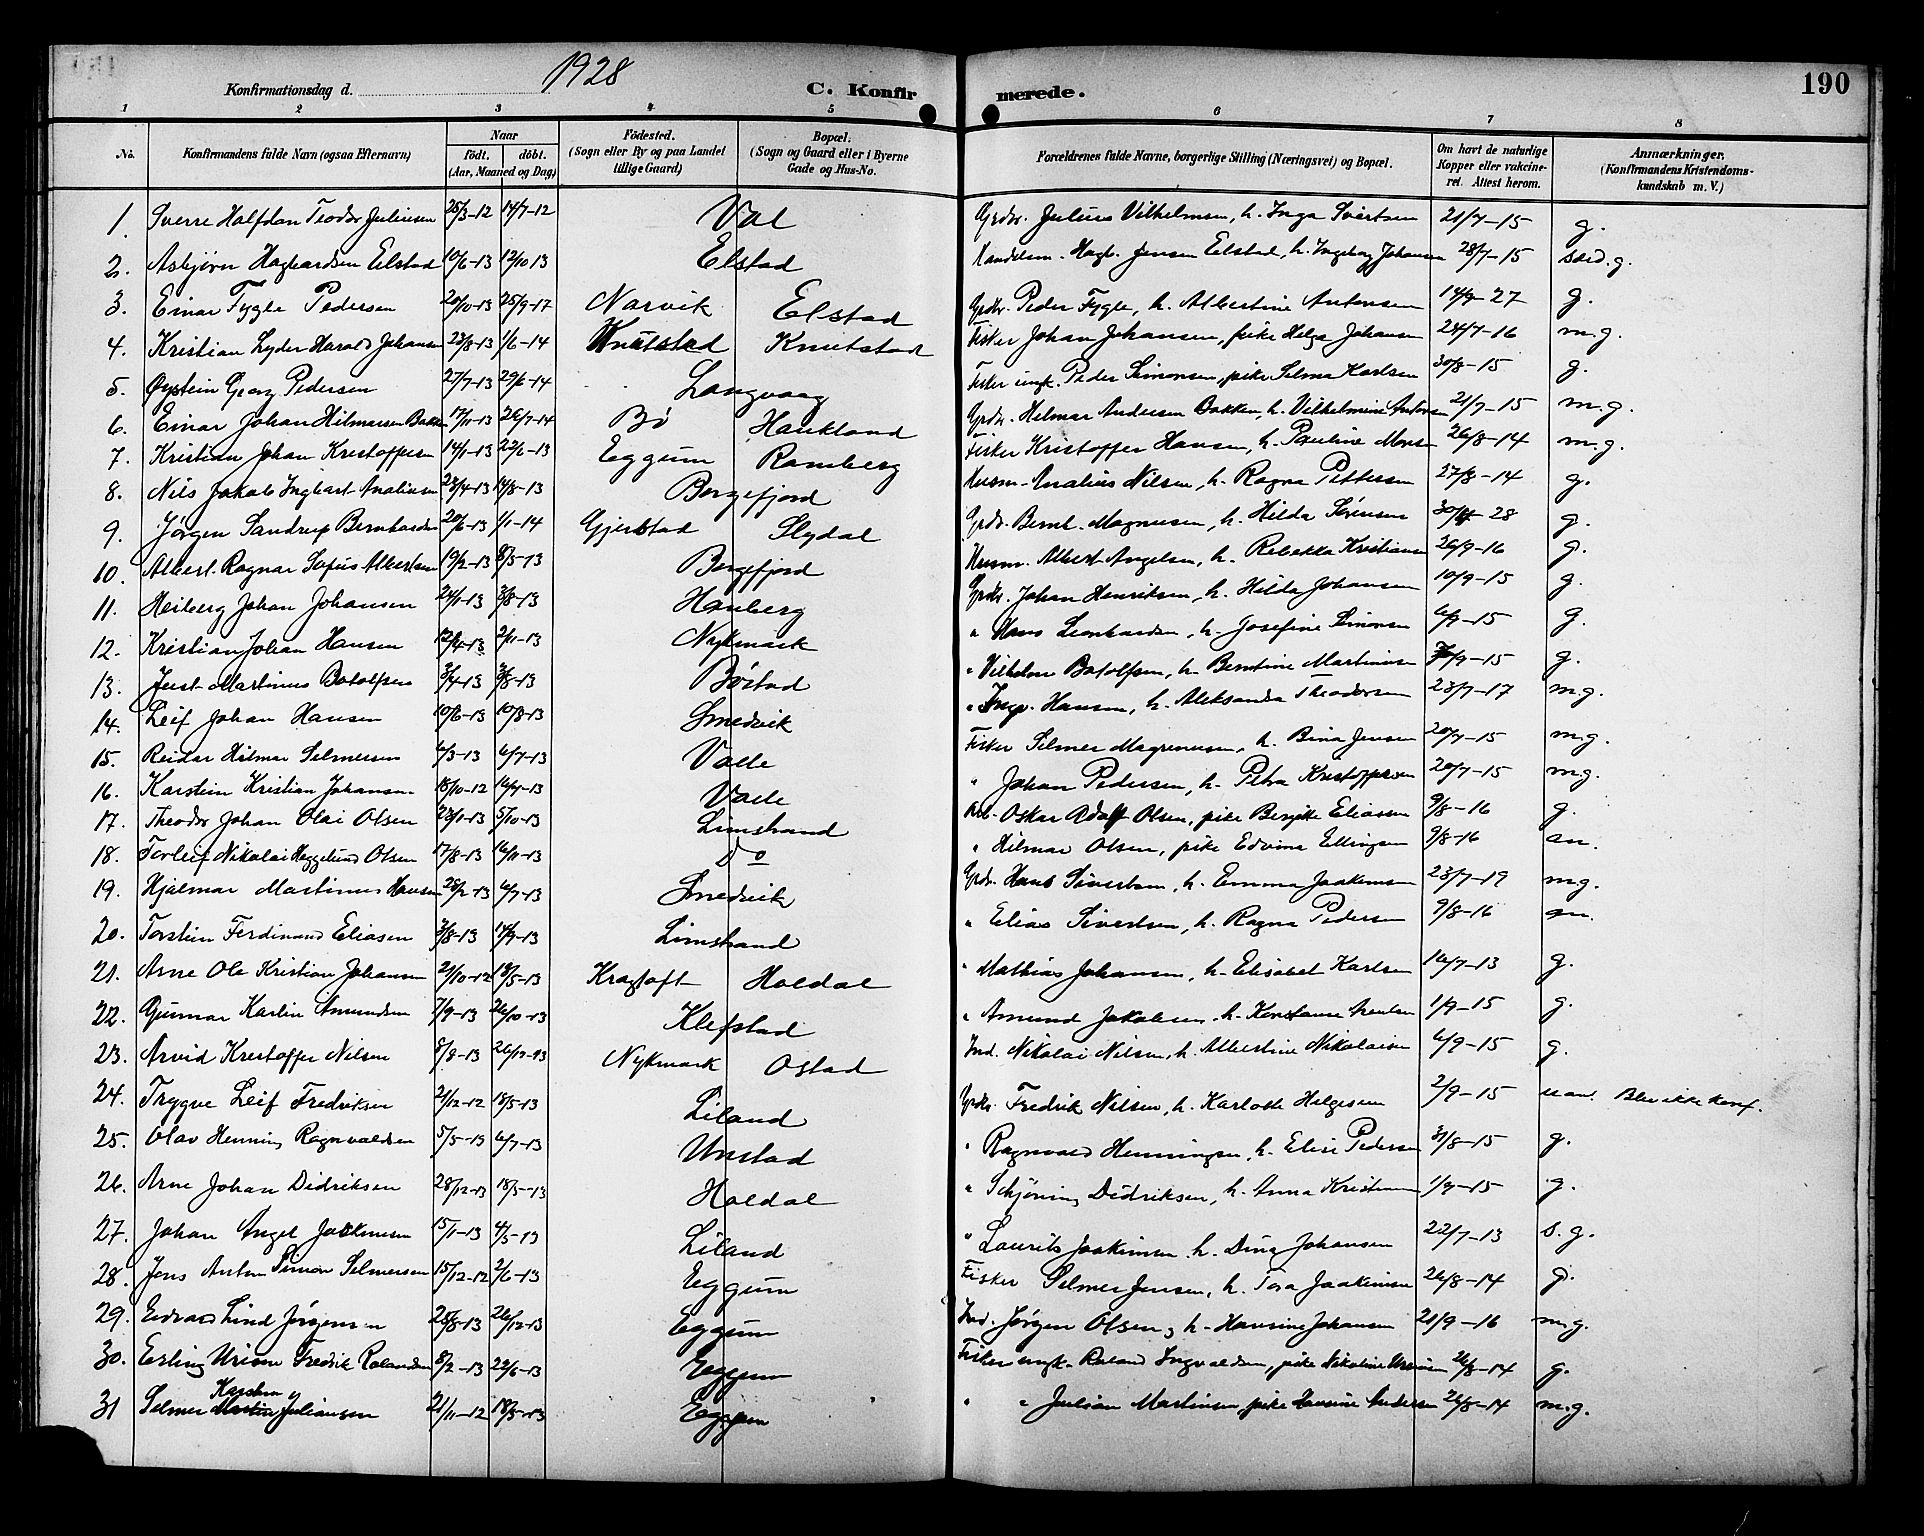 190
Konfirmationsdag d. 1928
C. Konfirmerede.
1 2 3 4 5 6 7 8
No. Konfirmandens fulde Navn (ogsaa Efternavn) Naar födt. döbt. (Aar, Maaned og Dag) Födested. (Sogn eller By og paa Landet tillige Gaard) Bopæl. (Sogn og Gaard eller i Byerne Gade og Hus-No. Forældrenes fulde Navne, borgerlige Stilling (Næringsvei) og Bopæl. Om havt de naturlige Kopper eller vakcineret. Attest herom. Anmærkninger. (Konfirmandens Kristendomskundskab m. V.)
1. Sverre Halfdan Teodor Juliusen 25/3-12 14/7-12 Val Grdbr. Julius Vilhelmsen, h. Inga Sivertsen 21/7-15 g.
2. Asbjørn Hagbardsen Elstad 10/6-13 12/10 13 Elstad Handelsm. Hagb. Jensen Elstad, h. Ingeborg Johansen 28/7-15 særd. g.
3. Einar Fygle Pedersen 20/10-13 25/9-17 Narvik Elstad Grdbr. Peder Fygle, h. Albertine Antonsen 14/9-27 g.
4. Kristian Lyder Harald Johansen 23/8-13 1/6-14 Knutstad Knutstad Fisker Johan Johansen, pike Helga Johansen 24/7-16 m.g.
5. Øystein Georg Pedersen 27/7-13 29/6-14 Langvaag Fisker ungk. Peder Simonsen, pike Selma Karlsen 30/8-15 g.
6. Einar Johan Hilmarsen Bakken 17/11-13 26/7-14 Bø Haukland Grdbr. Hilmar Andersen Bakken, h. Vilhelmine Antonsen 21/7-15 m.g.
7. Kristian Johan Kristoffersen 14/1-13 22/6-13 Eggum Ramberg Fisker Kristoffer Hansen, h. Pauline 26/8-14 m.g.
8. Nils Jakob Ingbart Analiusen 23/4-13 14/8-13 Borgefjord Husm. Analius Nilsen, h. Ragna Pettersen 27/8-14 g.
9. Jørgen Sandrup Bernhardsen 20/6-13 1/1-14 Gjerstad Slydal Grdb. Bernh. Magnusen, h. Hilda Sørensen 30/4 28 g.
10. Albert Ragnar Sofus Albertsen 19/2-13 8/5-13 Borgefjord Husm. Albert Angelsen, h. Rebekka Kristiansen 26/9-16 g.
11. Heiberg Johan Johansen 24/1-13 3/8-13 Hauberg Grdbr. Johan Henriksen, h. Hilda Johansen 10/9-15 g.
12. Kristian Johan Hansen 12/4-13 2/11-13 Nykmark " Hans Leonhardsen, h. Josefine Simonsen 6/9-15 g.
13. Just Martinus Botolfsen 3/4-13 3/8-13 Bøstad " Vilhelm Botolfsen, h. Berntine Martinusen /9-15 g.
14. Leif Johan Hansen 10/6-13 10/8-13 Smedvik " Ingv. Hansen, h. Aleksanda Theodorsen 23/7-17 m.g.
15. Reidar Hilmar Selmersen 6/3-13 6/7-13 Valle Fisker Selmer Magnusen, h. Bina Jensen 20/7-15 m.g.
16. Karstein Kristian Johansen 18/10-12 16/4-13 Valle " Johan Pedersen, h. Petra Kristoffersen 20/7-15 m.g.
17. Theodor Johan Olai Olsen 23/1-13 5/10-13 Limstrand Arb. Oskar Adolf Olsen, pike Bergitte Eliassen 9/8-16 g.
18. Torleif Nikolai Heggelund Olsen 17/8-13 16/11-13 Do " Hilmar Olsen, pike Edvina Ellingsen 9/8-16 an.
19. Hjalmar Martinus Hansen 28/2-13 6/7-13 Smedvik Grdr. Hans Sivertsen, h. Emma Joakimsen 23/7-19 m.g.
20. Torstein Ferdinand Eliasen 3/8-13 14/9-13 Limstrand " Elias Sivertsen, h. Ragna Pedersen 9/8-16 an.
21. Arne Ole Kristian Johansen 21/10-12 18/5-13 Kragtoft Holdal " Mathias Johansen, h. Elisabet Karlsen 16/7-13 g.
22. Gunnar Karlin Amundsen 7/9-13 26/10-13 Klefstad " Amund Jakobsen h. Konstanse 1/9-15 g.
23. Arvid Kristoffer Nilsen 8/8-13 26/12-13 Nykmark Ostad Ind. Nikolai Nilsen, h. Albertine Nikolaisen 6/9-15 g.
24. Trygve Leif Fredriksen 21/12-12 18/5-13 Liland Grdbr. Fredrik Nilsen, h. Karlotte Helgesen 2/9-15 uan. Blev ikke konf.
25. Olav Henning Ragnvaldsen 5/5-13 6/7-13 Unstad " Ragnvald Henningsen, h. Elise Pedersen 31/8-15 g.
26. Arne Johan Didriksen 28/12-13 18/5-13 Holdal " Schjøning Didriksen, h. Anna Kristensen 1/9-15 g.
27. Johan Angel Joakimsen 15/1-13 4/5-13 Liland " Laurits Joakimsen h. Dina Johansen 22/7-13 s. g.
28. Jens Anton Simon Selmersen 15/12-12 2/6-13 Eggum Fisker Selmer Jensen, h. Tora Joakimsen 26/8-14 g.
29. Edvard Lind Jørgensen 25/8-13 26/12-13 Eggum Ind. Jørgen Olsen, h. Hansine Johansen 21/9-16 m.g.
30. Erling Fredrik Rolandsen 8/2-13 22/6-13 Eggum Fisker ungk. Roland Ingvaldsen, pike Nikoline 26/8-14 g.
31 Selmer Karsten Juliansen 21/11-12 18/5-13 Eggum " " Julian Martinsen, pike Hansine Andersen 26/8-14 m.g.